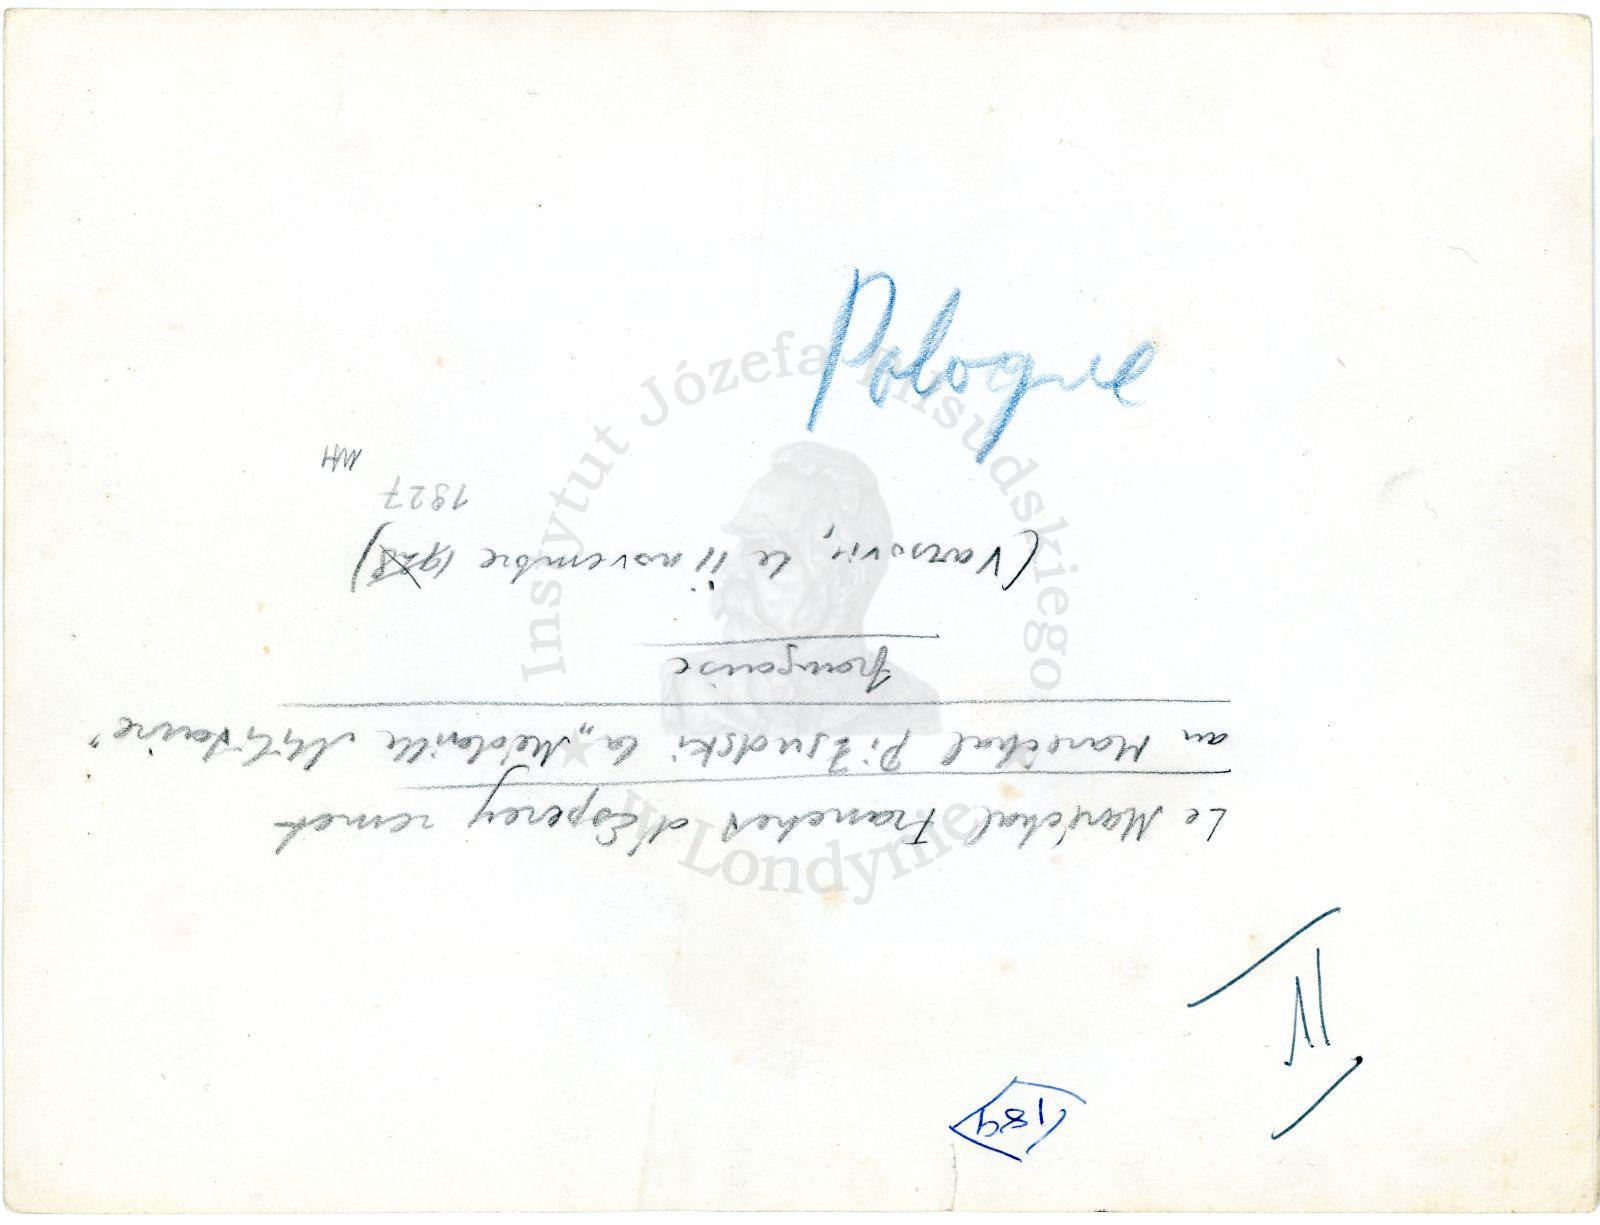 Pologne
Le Maréchal Franchet d'Esperey remet
au Maréchal Piłsudski la „Médaille Militaire"
française
(Varsovie, le 11 novembre 1928)
1927
MH
189
II
Instytut Józefa Piłsudskiego
w Londynie